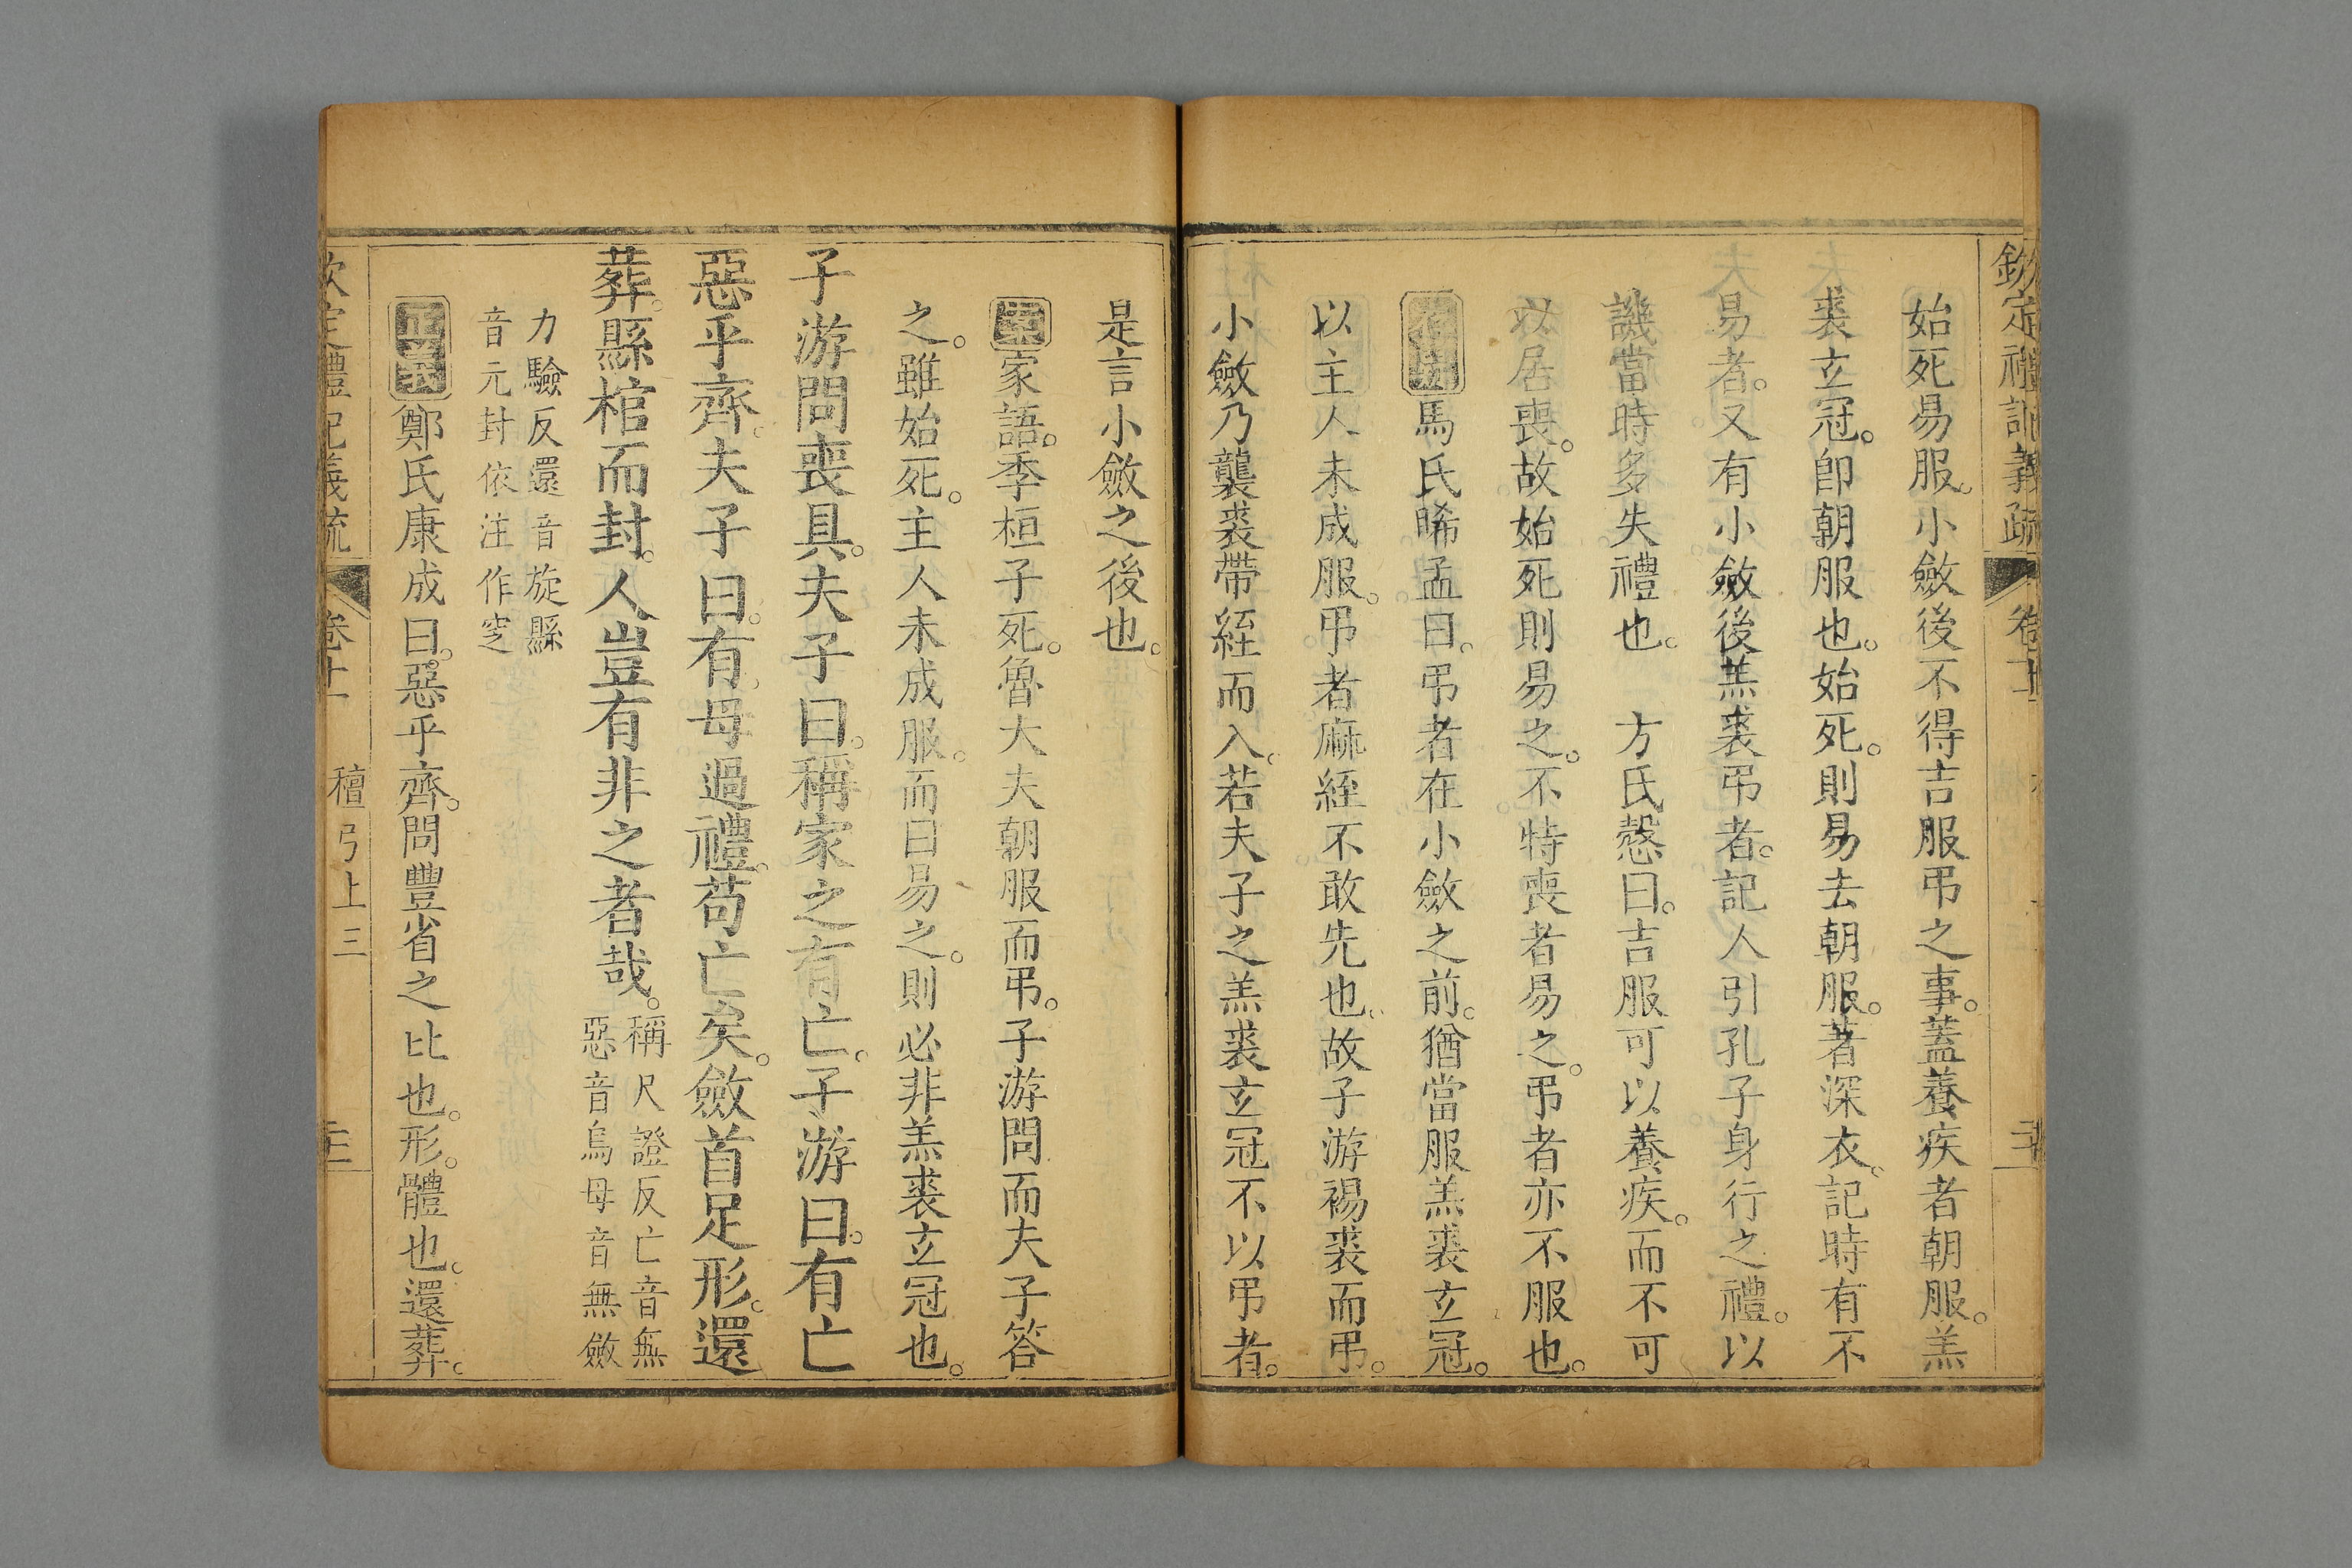 欽定禮記義疏 卷十一
始死易服。小斂後不得吉服弔之事。蓋養疾者朝服。羔
裘玄冠。卽朝服也。始死。則易去朝服。著深衣。記時有不
易者。又有小斂後羔裘弔者。記人引孔子身行之禮。以
譏當時多失禮也。 方氏慤曰。吉服可以養疾。而不可
以居喪。故始死則易之。不特喪者易之。弔者亦不服也。
馬氏晞孟曰。弔者在小斂之前。猶當服羔裘玄冠。
以主人未成服。弔者麻絰不敢先也。故子游裼裘而弔。
小斂乃襲裘帶絰而入。若夫子之羔裘玄冠不以弔者。
是言小斂之後也。
家語。季桓子死。魯大夫朝服而弔。子游問而夫子答
之。雖始死。主人未成服。而曰易之。則必非羔裘玄冠也。
子游問喪具。夫子曰。稱家之有亡。子游曰。有亡
惡乎齊。夫子曰。有。毋過禮。苟亡矣。斂首足形。還
葬。縣棺而封。人豈有非之者哉。稱尺證反亡音無
惡音烏毋音無斂
力驗反還音旋縣
音元封依注作窆
正義鄭氏康成曰。惡乎齊。問豐省之比也。形。體也。還葬。
欽定禮記義疏 卷十一 檀弓上三